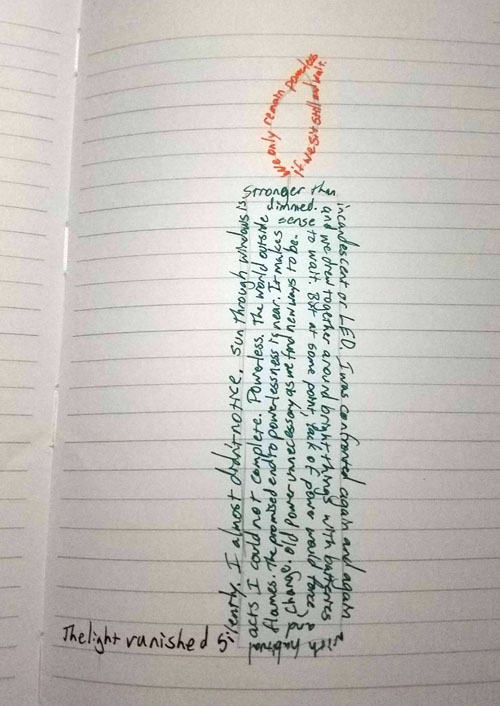 The light vanished silently. I almost didn't notice. Sun through windows is
stronger than
incandescent or LED. I was confronted again and again
with habitual
acts I could not complete. Powerless. The world outside
dimmed.
and we drew together around bright things with batteries
and
flames. The promised end to powerlessness is near. It makes
sense
to wait. But at some point lack of power would force
change. Old power unnecessary as we find new ways to be.
We only remain powerless
if we sit still and wait.